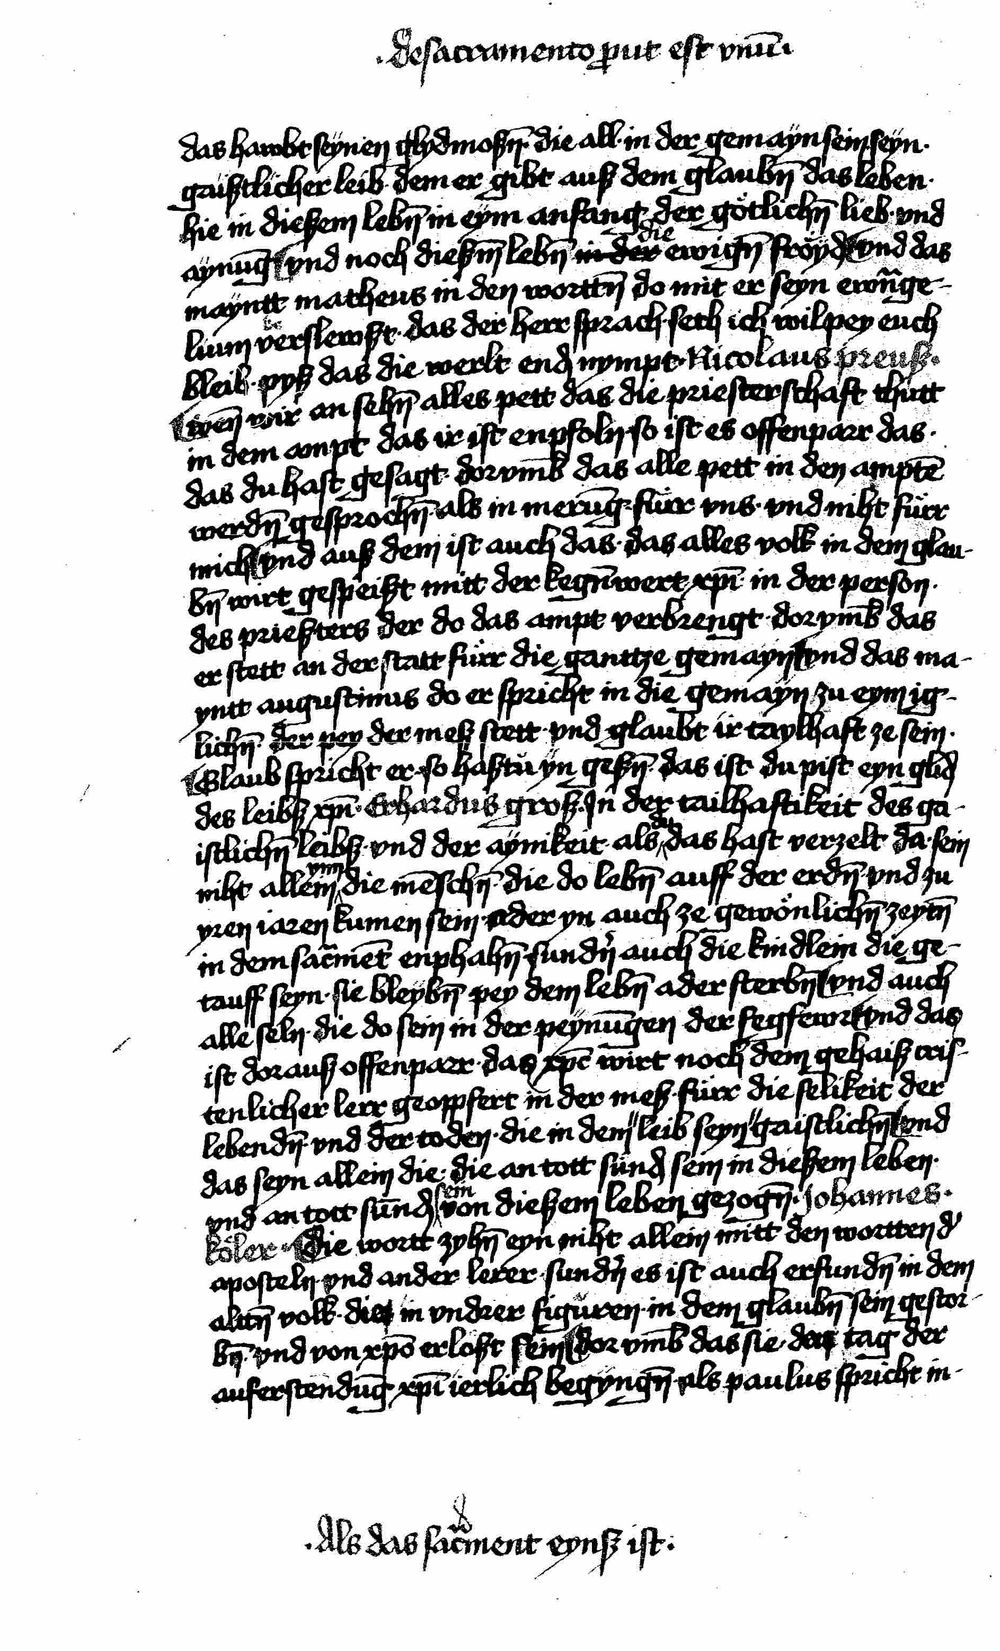 . de sacramento put est vnū .
das hawbt seynen glydmoßn̄ · die all · in der gemayn sein seyn ·
gaistlicher leib · dem er gibt auß dem glaubn̄ das leben ·
hie in dießem lebn̄ in eym anfang der götlichn̄ lieb · vnd
aynūg vnd noch dießm̄ lebn̄ in der die ewign̄ fröyd vnd das
mayntt matheus in den worttn̄ do mit er seyn ewāge-
lium verslewßt · das der herr sprach · seth ich wil pey euch
bleib · pyß das die werlt end nympt · Nicolaus preuß ·
wen̄ wir an sehn̄ alles pett das die priesterschaft thutt
in dem ampt das ir ist enpfoln · so ist es offenparr das ·
das du hast gesagt · dorvmb das alle pett in den amptē
werdn̄ gesprochn̄ · als in merūg · fürr vns · vnd niht fürr
mich vnd auß dem ist auch das · das alles volk in dem glau-
bn̄ wirt gespeißt mitt der kegn̄wert xp̄i · in der person ·
des prießters der do das ampt verbrengt · dorvmb das
er stett an der statt fürr die ganttze gemayn vnd das ma-
yntt augustinus do er spricht in die gemayn zu eym ig-
lichn̄ · der pey der meß stett · vnd glaubt ir taylhaft ze sein ·
Glaub spricht er · so hastu yn geßn̄ · das ist du pist eyn glid
des leibß xp̄i · Erhardus groß · In der tailhaftikeit des ga-
istlichn̄ leibß · vnd der aynikeit · als du das hast verzelt da · sein
niht allein vmm die mēschn̄ · die do lebn̄ auff der erdn̄ · vnd zu
yren iaren kumen sein · ader yn auch ze gewönlichn̄ zeytn̄
in dem sac̄met enphahn̄ · sundn̄ auch die kindlein die ge-
tauff seyn · sie bleybn̄ pey dem leben ader sterbn̄ vnd auch
alle seln · die do sein in der peynūgen der fegfewr vnd das
ist dorauß offenparr · das xp̄c wirt noch dem gehaiß cris-
tenlicher lerr geoppfert in der meß · fürr die selikeit der
lebendn̄ · vnd der toden · die in dem leib seyn gaistlichn̄ vnd
das seyn allein die · die an tott sünd sein in dießem leben ·
vnd an tott sünd sein von dießem leben gezogn̄ · Johannes ·
köler · die wortt zyhn̄ eyn niht allein mitt den wortten d'
aposteln · vnd ander lerer · sundn̄ es ist auch erfundn̄ in dem
altn̄ volk · die in vndrer figuren · in dem glaubn̄ sein gestor-
bn̄ · vnd von xp̄o erloßt sein dor vmb das sie · den tag der
auferstendūg xp̄i ierlich begyngn̄ als paulus spricht in ·
. Als das sac̄ment eynß ist .